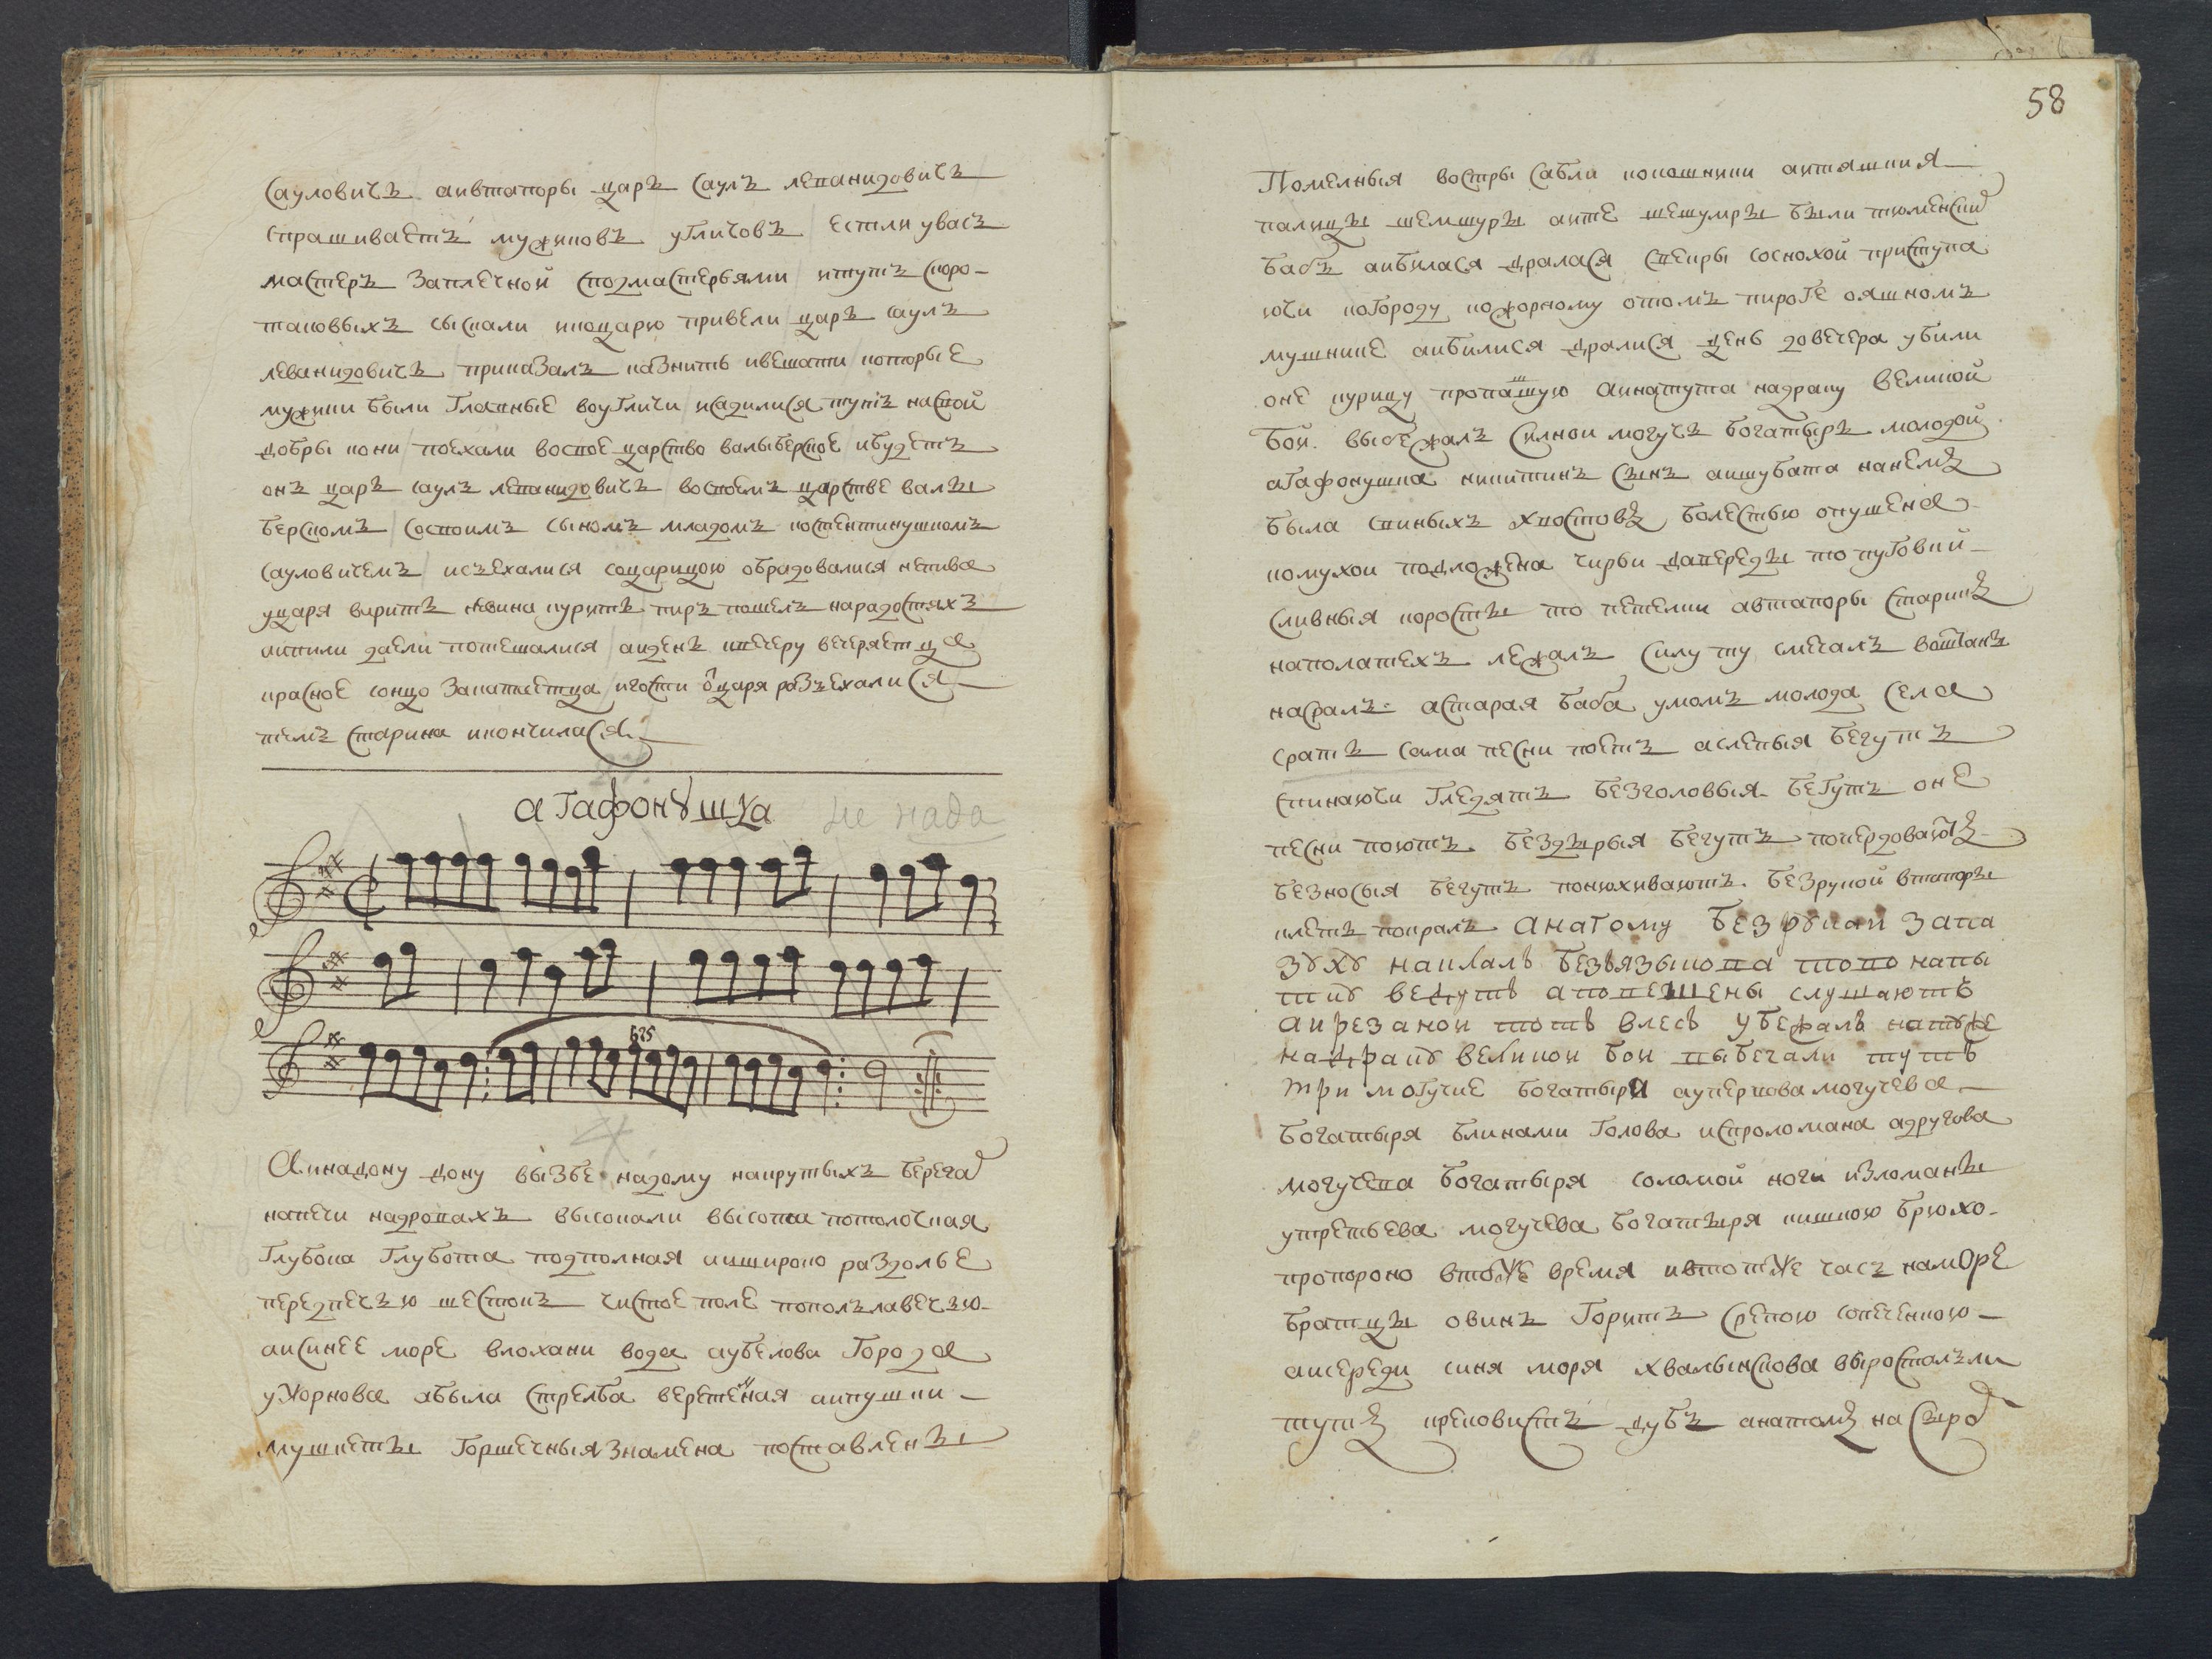 Сауловичъ аивтапоры царь Саулъ леванидовичъ
спрашиваетъ мужиковъ угличовъ естли увасъ
мастеръ заплечной сподмастерьями итутъ скоро-
таковыхъ сыскали икоцарю привели царь саулъ
леванидовичъ приказалъ казнить ивешати которые
мужики были главные воугличи исадилися тутъ насвои
добры кони поехали восвое царство валыберское ибудетъ
онъ царь саулъ леванидовичъ восвоемъ царстве валы
берскомъ сосвоимъ сыномъ младомъ костентинушкомъ
сауловичемъ исъехалися соцарицою обрадовалися непива
уцаря варить невина курить пиръ пошелъ нарадостяхъ
аипили даели потешалися аиденъ квечеру вечеряетца
красное сонцо закатаетца игости ѿцаря разъехалися
темъ старина икончилася
агафонꙋшка
не надо
675
Аинадону дону вызбе надому накрутыхъ берега
напечи надровахъ высокали высота потолочная
глубока глубота подпольная аишироко раздолье
передпечъю шестокъ чистое поле пополълавечъю
аисинее море влохани вода аубелова города
ужорнова абыла стрельба веретенная аипушки
мушкеты горшечныя знамена поставлены
58
Помелныя востры сабли кокошники аитяшкия
палицы шемшуры аите шешумры были тюменских
бабъ аибилася дралася свекры соснохой приступа
ючи погороду пожорному отомъ пироге ояшномъ
мушнике аибилися дралися день довечера убили
оне курицу пропащую аинатута надраку великой
бои выбежалъ силнои могучъ богатырь молодой
агафонушка никитинъ сынъ аишубата нанемъ
была свиныхъ хвостовъ болестью опушена
комухои подложена чирьи давереды то пуговки
сливныя коросты то петелки автапоры старикъ
наполатехъ лежалъ силу ту смечалъ воштаны
насралъ астарая баба умомъ молода села
срать сама песни поетъ аслепыя бегутъ
спинаючи гледятъ безголовыя бегутъ оне
песни поютъ бездырыя бегутъ попердоваютъ
безносыя бегутъ понюхиваютъ безрукой втапоры
клеть покралъ анагому безрꙋкаи запа
зꙋхꙋ наклалъ безъязыкова тово напы
ткꙋ ведутъ аповешены слушаютъ
аирезанои тотъ влесъ убежалъ натꙋже
надракꙋ великои бои выбегали тутъ
три могучие богатыри аупервова могучева
богатыря блинами голова испроломана адругова
могучева богатыря соломой ноги изломаны
утретьева могучева богатыря кишкою брюхо
пропороно втоже время ивтотже часъ наморе
братцы овинъ горитъ срепою сопеченкою
аисереди синя моря хвалынскова выросталъли
тутъ креповистъ дубъ анатомъ насыро